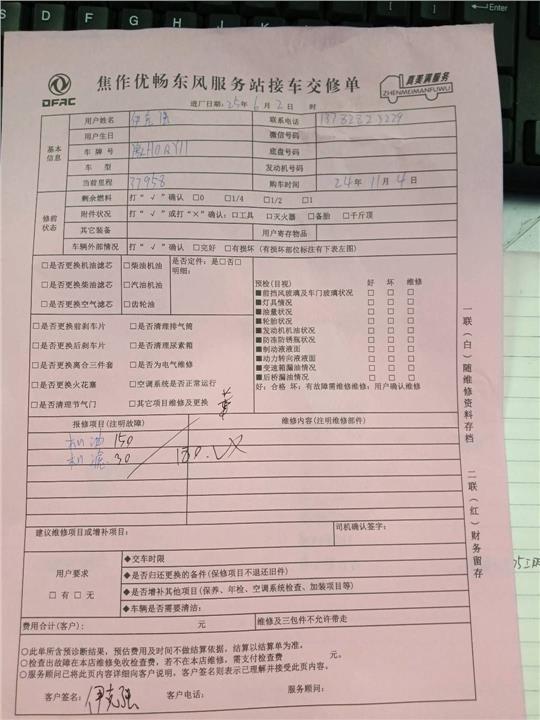 DFAC
焦作优畅东风服务站接车交修单
真美满服务
ZHENMEIMANFUWU
进厂日期：25年 6 月 2 日 时
基本信息
用户姓名 伊克强 联系电话
用户生日 微信号码
车 牌 号 底盘号码
车 型 发动机号码
当前里程 37958 购车时间 24年 11月 4日
修前状态
剩余燃料 打“√”确认 □0 □1/4 □1/2 □1
附件状况 打“√”或打“×”确认：□工具 □灭火器 □备胎 □千斤顶
其它装备 用户寄存物品
车辆外部情况 打“√”确认 □完好 □有损坏（有损坏部位标注有下表左图）
□是否更换机油滤芯 □柴油机油 是否定件：是□否□
明细：
□是否更换柴油滤芯 □汽油机油
□是否更换空气滤芯 □齿轮油
预检(目视) 好 坏 维修
■前挡风玻璃及车门玻璃状况 □ □ □
■灯具情况 □ □ □
■油量状况 □ □ □
■轮胎状况 □ □ □
■发动机机油状况 □ □ □
■防冻防锈瓶状况 □ □ □
■制动液液面 □ □ □
■动力转向液液面 □ □ □
■变速箱漏油情况 □ □ □
■后桥漏油情况 □ □ □
好：合格 坏：有故障需维修维修：用户确认维修
□是否更换前刹车片 □是否清理排气筒
□是否更换后刹车片 □是否清理尿素箱
□是否更换离合三件套 □是否为电气维修
□是否更换火花塞 □空调系统是否正常运行
□是否清理节气门 □其它项目维修及更换
报修项目(注明故障) 维修内容(注明维修部件)
机油 150
机滤 30 180.
建议维修项目或增补项目： 司机确认签字：
用户要求
□ 有 □ 无
◆交车时限
◆是否归还更换的备件(保修项目不退还旧件)
◆是否增补其他项目(保养、年检、空调系统检查、加装项目等)
◆车辆是否需要清洁：
费用合计(客户)： 元 维修及三包件不允许带走
○此单所含预诊断结果，预估费用及时间不做结算依据，结算以结算单为准。
○检查出故障在本店维修免收检查费，若不在本店维修，需支付检查费 元。
○服务顾问已将此页内容详细向客户说明，客户签名则表示已理解并接受此页内容。
客户签名：伊克强 客户电话： 服务顾问：
一联(白)随维修资料存档 二联(红)财务留存